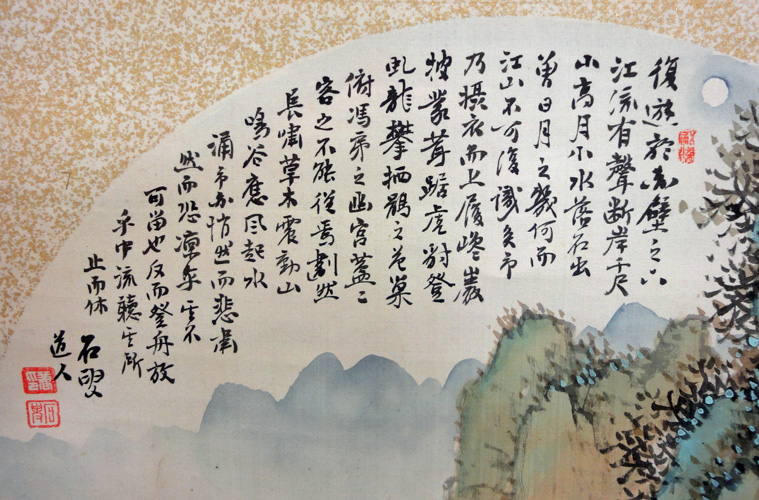 復遊於赤壁之下
江流有聲断岸千尺
山高月小水落石出
曾日月之幾何而
江山不可復識矣予
乃摂衣而上履巉巖
披蒙茸踞虎豹登
虬龍攀栖鶻之危巢
俯馮夷之幽宮蓋二
客之不能從焉劃然
長嘯草木震動山
鳴谷應風起水
涌予亦悄然而悲肅
然而恐凛乎其不
可留也反而登舟放
乎中流聽其所
止而休
石叟
道人